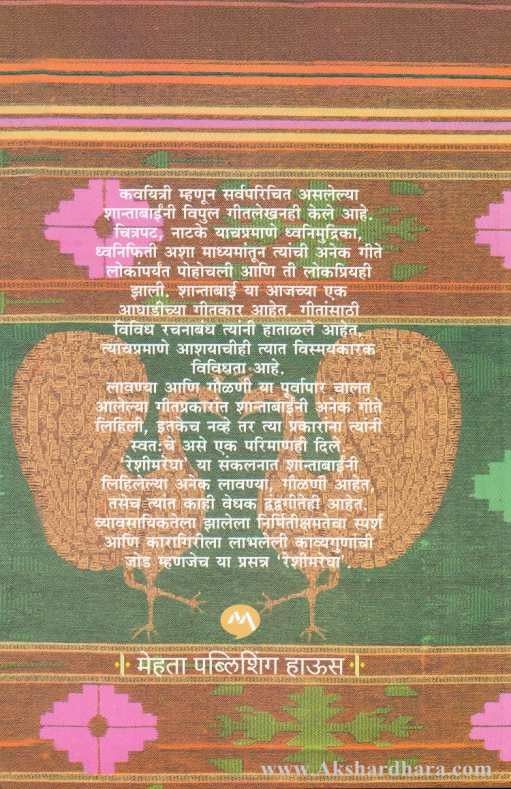 कवयित्री म्हणून सर्वपरिचित असलेल्या
शान्ताबाईंनी विपुल गीतलेखनही केले आहे.
चित्रपट, नाटके याचप्रमाणे ध्वनिमुद्रिका,
ध्वनिफिती अशा माध्यमांतून त्यांची अनेक गीते
लोकांपर्यंत पोहोचली आणि ती लोकप्रियही
झाली. शान्ताबाई या आजच्या एक
आघाडीच्या गीतकार आहेत. गीतांसाठी
विविध रचनाबंध त्यांनी हाताळले आहेत.
त्याचप्रमाणे आशयाचीही त्यात विस्मयकारक
विविधता आहे.
लावण्या आणि गौळणी या पूर्वापार चालत
आलेल्या गीतप्रकारांत शान्ताबाईंनी अनेक गीते
लिहिली, इतकेच नव्हे तर त्या प्रकारांना त्यांनी
स्वतःचे असे एक परिमाणही दिले.
'रेशीमरेघा' या संकलनात शान्ताबाईंनी
लिहिलेल्या अनेक लावण्या, गौळणी आहेत,
तसेच त्यांत काही वेधक द्वंद्वगीतेही आहेत.
व्यावसायिकतेला झालेला निर्मितीक्षमतेचा स्पर्श
आणि कारागिरीला लाभलेली काव्यगुणांची
जोड म्हणजेच या प्रसन्न 'रेशीमरेघा'.
मेहता पब्लिशिंग हाऊस
www.Akshardhara.com